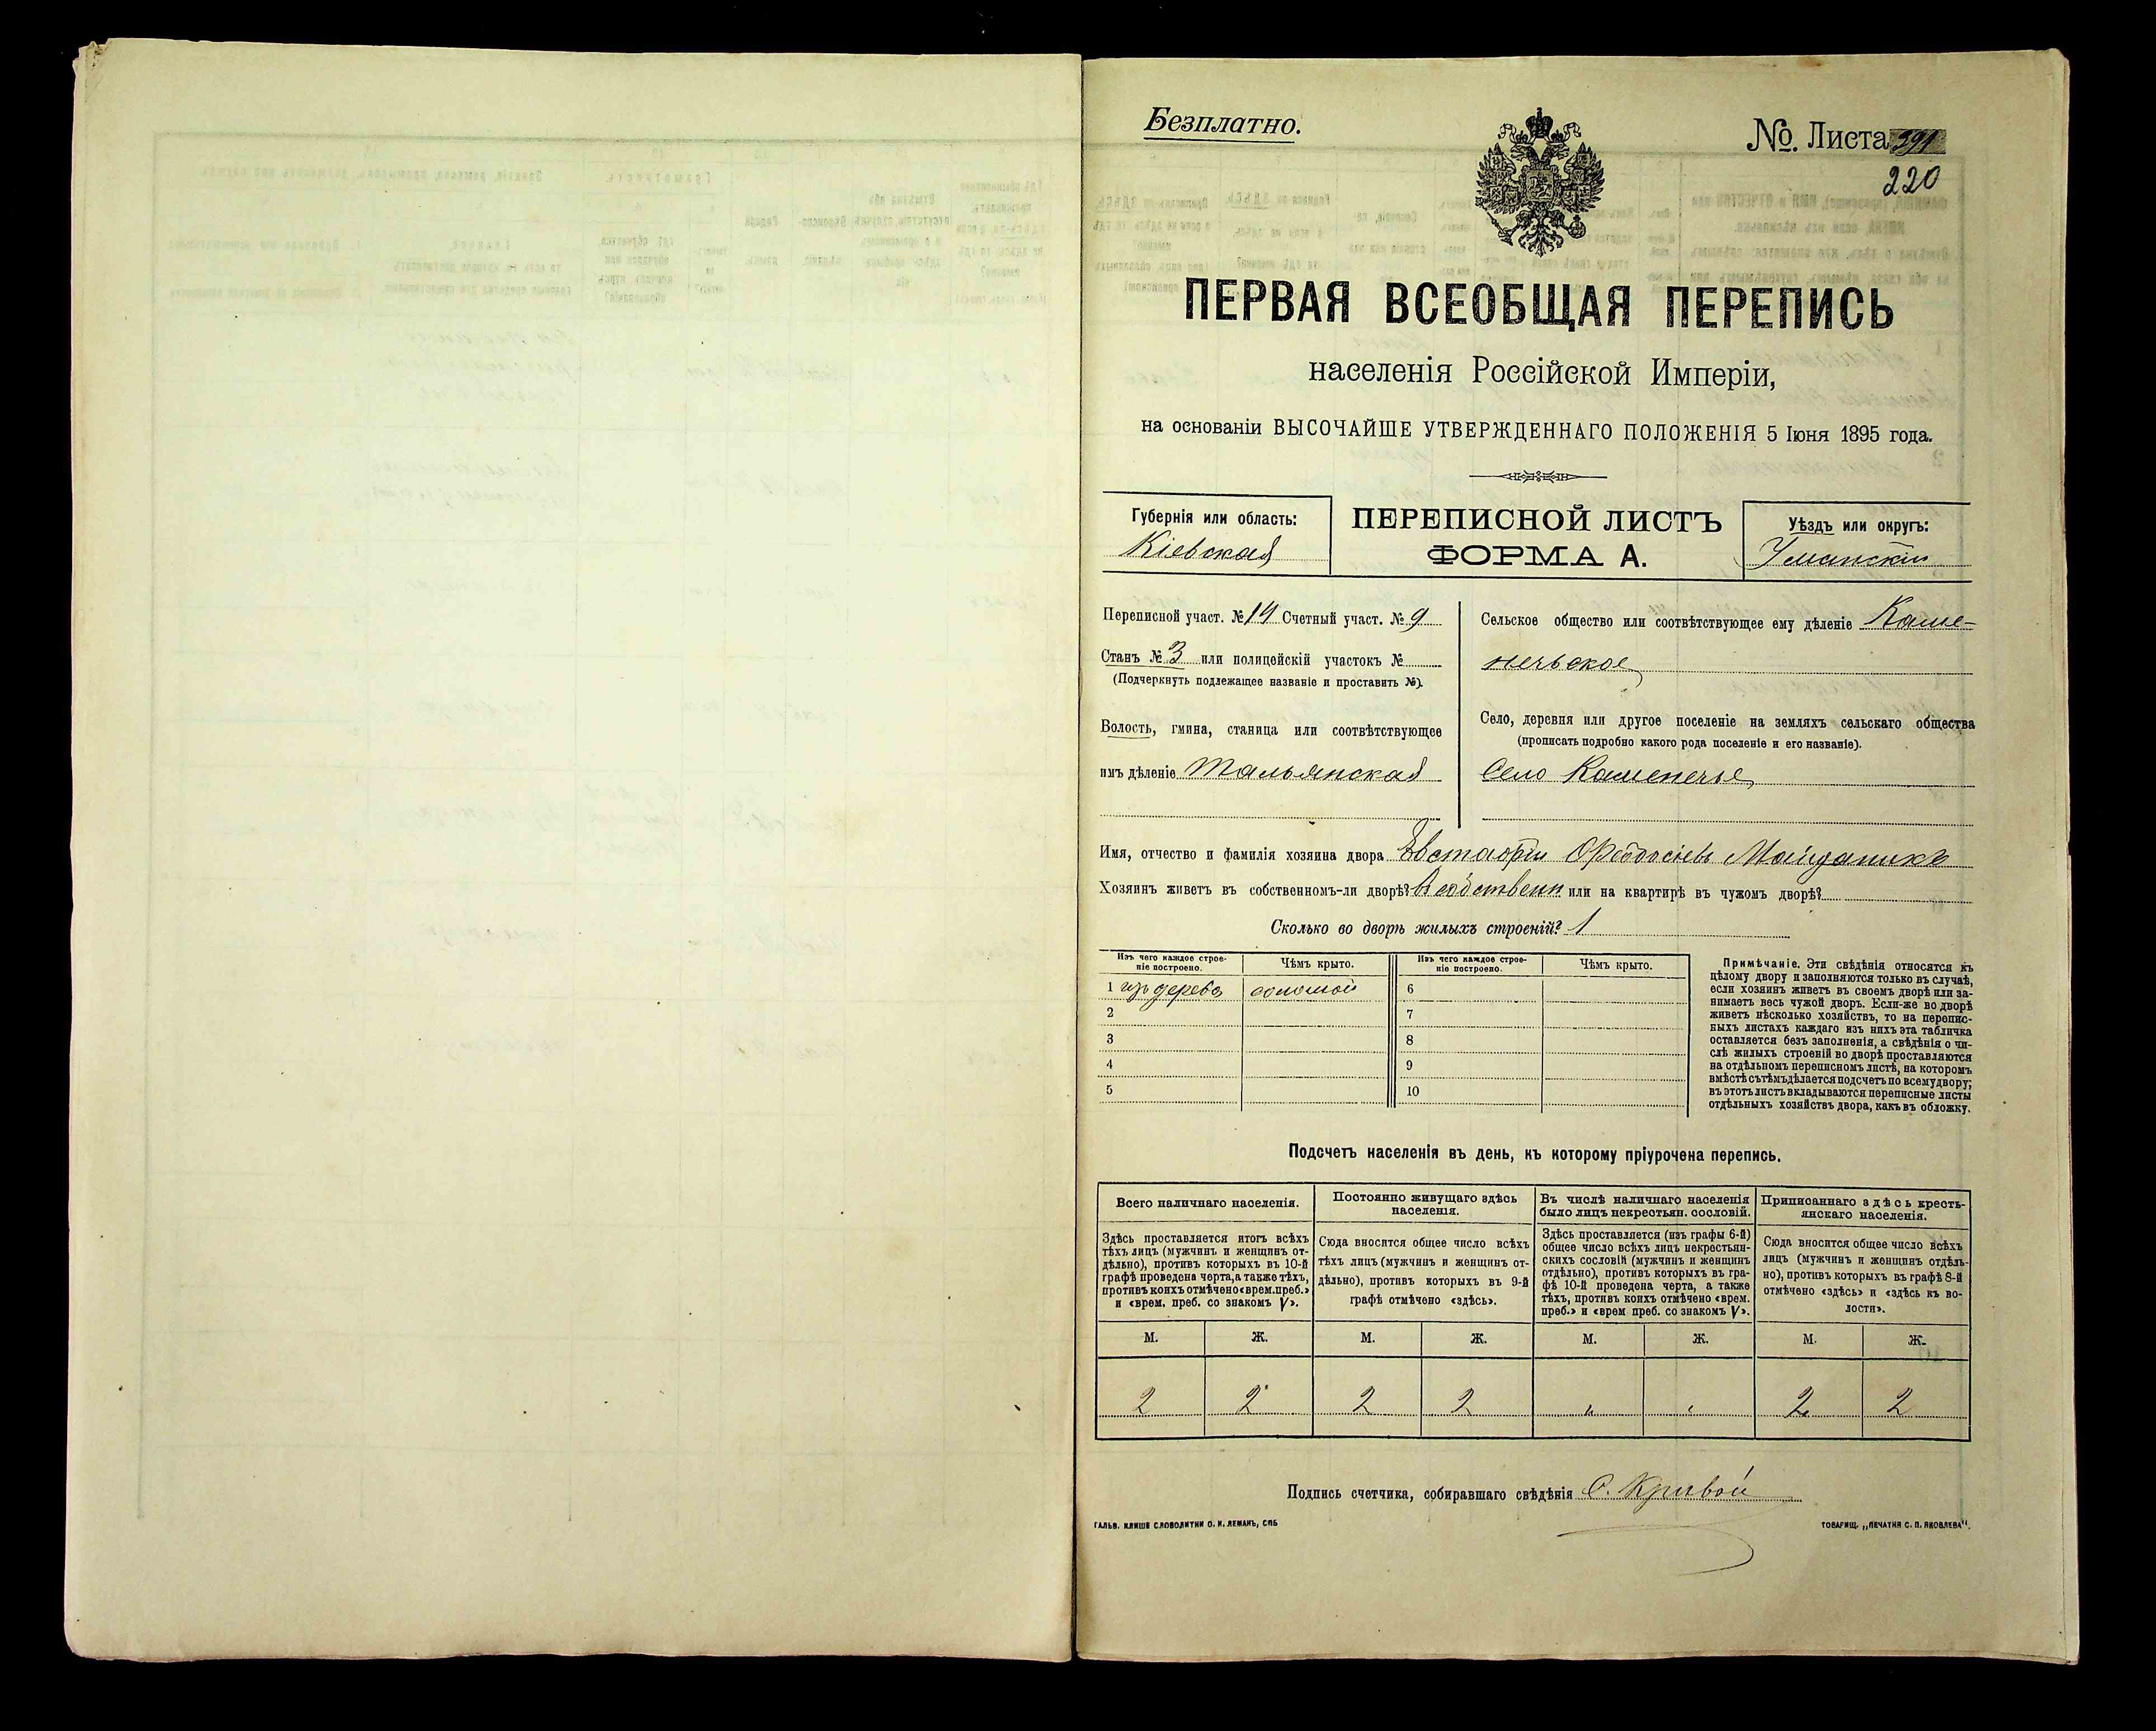 Безплатно.
№. Листа 391
220
ПЕРВАЯ ВСЕОБЩАЯ ПЕРЕПИСЬ
населенія Россійской Имперіи,
на основаніи ВЫСОЧАЙШЕ УТВЕРЖДЕННАГО ПОЛОЖЕНІЯ 5 Іюня 1895 года.
Губернія или область:
Кіевская
ПЕРЕПИСНОЙ ЛИСТЪ
ФОРМА А.
Уѣздъ или округъ:
Уманскій
Переписной участ. № 14 Счетный участ. № 9
Станъ № 3 или полицейскій участокъ №
(Подчеркнуть подлежащее названіе и проставить №).
Волость, гмина, станица или соотвѣтствующее
имъ дѣленіе Тальянская
Сельское общество или соотвѣтствующее ему дѣленіе Каме-
нечьское
Село, деревня или другое поселеніе на земляхъ сельскаго общества
(прописать подробно какого рода поселеніе и его названіе).
Село Каменечье
Имя, отчество и фамилія хозяина двора Евстафій Феодосіевъ Майданикъ
Хозяинъ живетъ въ собственномъ-ли дворѣ? В собственн или на квартирѣ въ чужомъ дворѣ?
Сколько во дворѣ жилыхъ строеній? 1
Изъ чего каждое строе-
ніе построено.
Чѣмъ крыто.
Изъ чего каждое строе-
ніе построено.
Чѣмъ крыто.
1 изъ дерева соломой 6
2 7
3 8
4 9
5 10
Примѣчаніе. Эти свѣдѣнія относятся къ
цѣлому двору и заполняются только въ случаѣ,
если хозяинъ живетъ въ своемъ дворѣ или за-
нимаетъ весь чужой дворъ. Если-же во дворѣ
живетъ нѣсколько хозяйствъ, то на перепис-
ныхъ листахъ каждаго изъ нихъ эта табличка
оставляется безъ заполненія, а свѣдѣнія о чи-
слѣ жилыхъ строеній во дворѣ проставляются
на отдѣльномъ переписномъ листѣ, на которомъ
вмѣстѣ съ тѣмъ дѣлается подсчетъ по всему двору;
въ этотъ листъ вкладываются переписные листы
отдѣльныхъ хозяйствъ двора, какъ въ обложку.
Подсчетъ населенія въ день, къ которому пріурочена перепись.
Всего наличнаго населенія.
Здѣсь проставляется итогъ всѣхъ
тѣхъ лицъ (мужчинъ и женщинъ от-
дѣльно), противъ которыхъ въ 10-й
графѣ проведена черта, а также тѣхъ,
противъ коихъ отмѣчено «врем. преб.»
и «врем. преб. со знакомъ V».
Постоянно живущаго здѣсь
населенія.
Сюда вносится общее число всѣхъ
тѣхъ лицъ (мужчинъ и женщинъ от-
дѣльно), противъ которыхъ въ 9-й
графѣ отмѣчено «здѣсь».
Въ числѣ наличнаго населенія
было лицъ некрестьян. сословій.
Здѣсь проставляется (изъ графы 6-й)
общее число всѣхъ лицъ некрестьян-
скихъ сословій (мужчинъ и женщинъ
отдѣльно), противъ которыхъ въ гра-
фѣ 10-й проведена черта, а также
тѣхъ, противъ коихъ отмѣчено «врем.
преб.» и «врем преб. со знакомъ V».
Приписаннаго здѣсь кресть-
янскаго населенія.
Сюда вносится общее число всѣхъ
лицъ (мужчинъ и женщинъ отдѣль-
но), противъ которыхъ въ графѣ 8-й
отмѣчено «здѣсь» и «здѣсь къ во-
лости».
М. Ж. М. Ж. М. Ж. М. Ж.
2 2 2 2 " " 2 2
Подпись счетчика, собиравшаго свѣдѣнія С. Кривой
ГАЛЬВ. КЛИШЕ СЛОВОЛИТНИ О. И. ЛЕМАНЪ, СПБ
ТОВАРИЩ. „ПЕЧАТНЯ С. П. ЯКОВЛЕВА“.